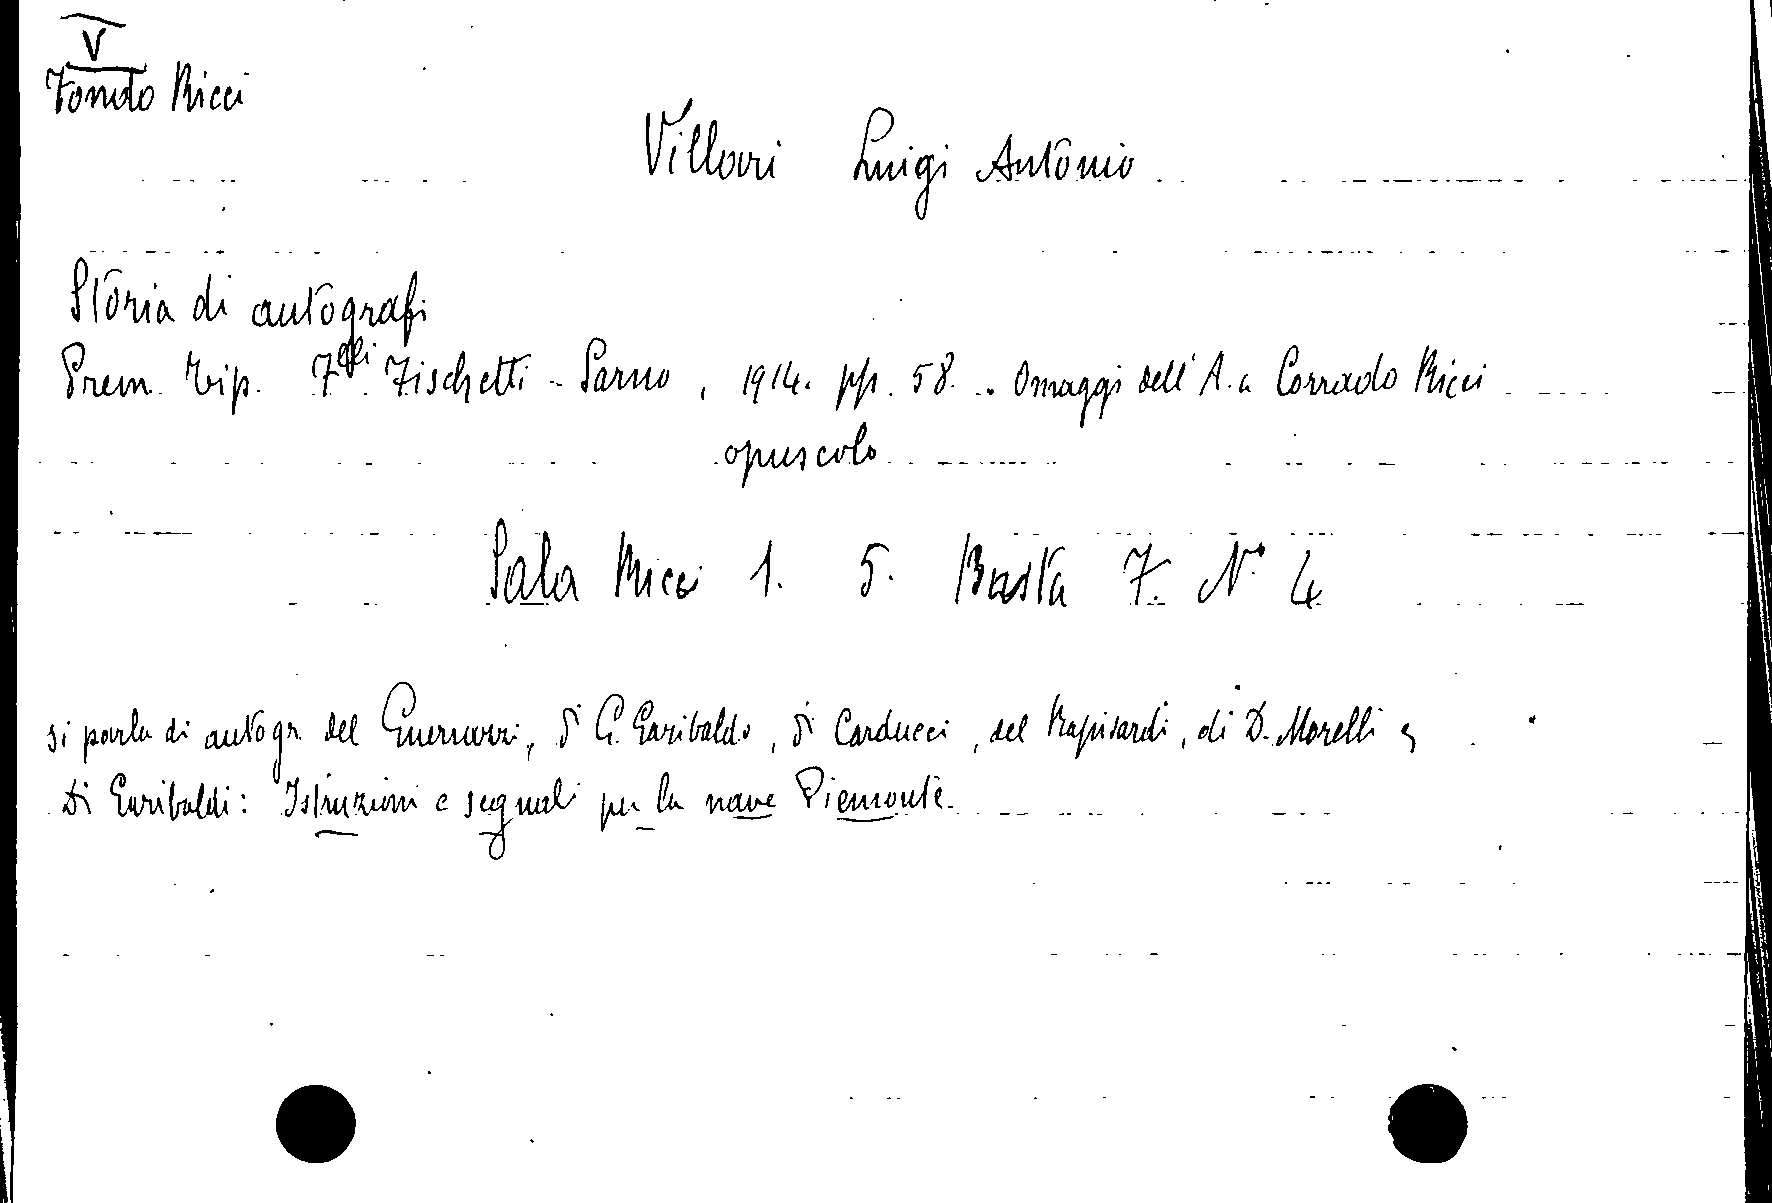 V
Fondo Ricci
Villari Luigi Antonio
Storia di autografi
Prem. tip. F.lli Fischetti - Sarno, 1914. pp. 58. - Omaggi dell'A. a Corrado Ricci
opuscolo
Sala Ricci 1. 5. Busta 7. N° 4
si parla di autogr. del Guerrazzi, di G. Garibaldo, di Carducci, del Rapisardi, di D. Morelli e
Di Garibaldi: Istruzioni e segnali per la nave Piemonte.